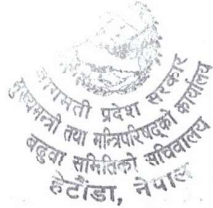 बागमती प्रदेश सरकार
मुख्यमन्त्री तथा मन्त्रिपरिषद्को कार्यालय
बढुवा समितिको सचिवालय
हेटौंडा, नेपाल